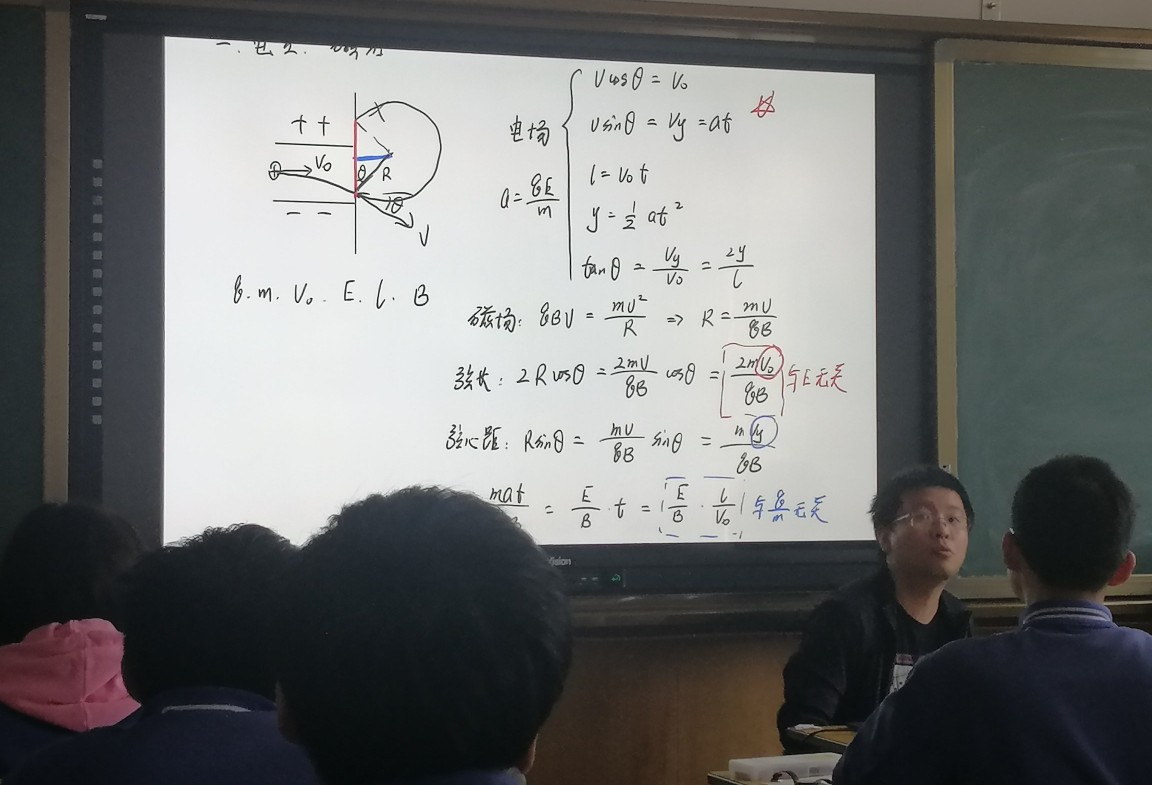 一.
+ +
V₀
θ
R
θ
- -
V
q. m. V₀. E. l. B
电场
a = qE/m
Vcosθ = V₀
Vsinθ = Vy = at
l = V₀t
y = 1/2 at²
tanθ = Vy/V₀ = 2y/l
磁场: qBV = mV²/R ⇒ R = mV/qB
弦长: 2Rcosθ = 2mV/qB cosθ = 2mV₀/qB 与E无关
弦心距: Rsinθ = mV/qB sinθ = mVy/qB
mat = E/B · t = E/B · l/V₀ 与q/m无关